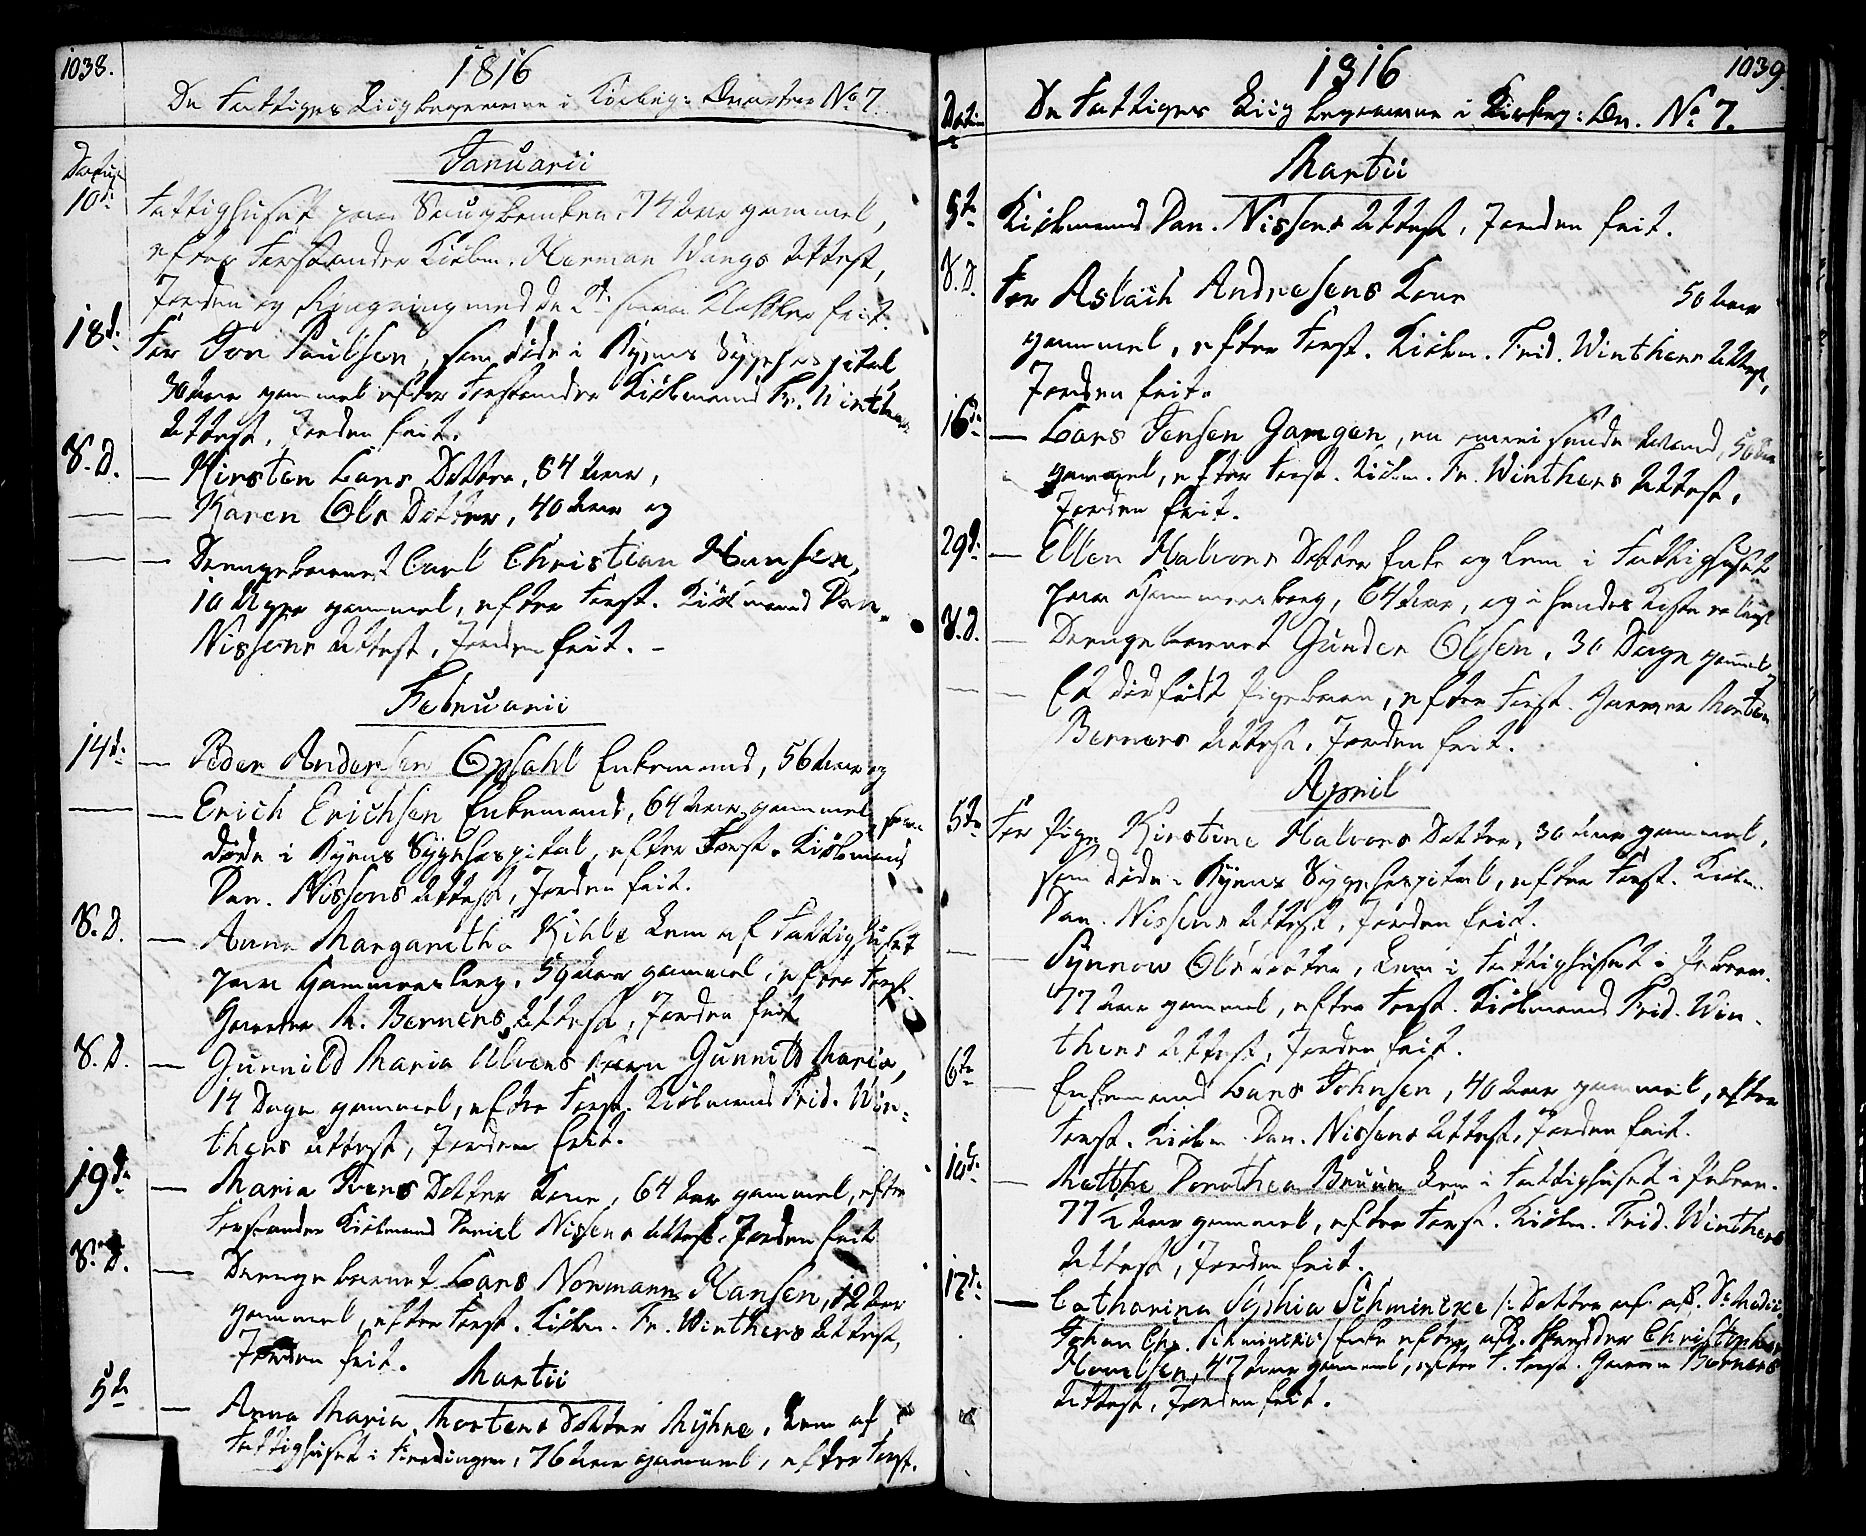 1038.
1816
De Fattiges Liigbegængelse i Kirkebog: Qvarteer No 7.
Januarii
Datum
10de Fattighuset paa Saugbanken, 74 Aar gammel,
efter Forstander Kiøbm. Herman Wangs Attest,
Jorden og Ringning med de 2de smaa Klokker frit.
18de For Jon Paulsen, som døde i Byens Sygehospital
30 Aar gammel efter Forstander Kiøbmand Fr. Winthers
Attest, Jorden frit.
S. D. — Kirsten Lars Datter, 84 Aar,
— — Karen Ols Datter, 40 Aar og
— — Drengebarnet Carl Christian Hansen,
10 Uger gammel, efter Forst. Kiøbmand Dan.
Nissens Attest, Jorden frit. -
Februarii
14de — Peder Andersen Opsahl Enkemand, 56 Aar og
— — Erich Erichsen Enkemand, 64 Aar gammel, som
døde i Byens Sygehospital, efter Forst. Kiøbmand
Dan. Nissens Attest, Jorden frit.
S. D. — Anna Margaretha Kihle Lem af Fattighuset
paa Hammersberg, 59 Aar gammel, efter Forst.
Garver M. Berners Attest, Jorden frit
S. D. — Gunnild Maria Alvens Barn Gunnild Maria,
14 Dage gammel, efter Forst. Kiøbmand Frid. Win-
thers Attest, Jorden frit.
19de — Maria Ivers Datter Kone, 64 Aar gammel, efter
Forstander Kiøbmand Daniel Nissens Attest, Jorden frit
S. D. — Drengebarnet Lars Normann Hansen, 12 Aar
gammel, efter Forst. Kiøbm. Fr. Winthers Attest,
Jorden frit.
Martii
5te — Anna Maria Mortens Datter Myhre, Lem af
Fattighuset i Fierdingen, 76 Aar gammel, efter Forst.
1816
1039.
Datum
De Fattiges Liigbegængelse i Kirkebog: Qv. No 7.
Martii
5te Kiøbmand Dan. Nissens Attest, Jorden frit.
S. D. For Aslach Andresens Kone 50 Aar
gammel, efter Forst. Kiøbm. Frid. Winthers Attest,
Jorden frit.
16de — Lars Jensen Gangen, en omreisende Mand, 56 Aar
gammel, efter Forst. Kiøbm. Fr. Winthers Attest,
Jorden frit.
29de — Ellen Halvors Datter Enke og Lem i Fattighuset
paa Hammersberg, 64 Aar, og i hendes Kiste er lagt
S. D. — Drengebarnet Gunder Olsen, 30 Dage gammel,
— — Et dødfødt Pigebarn, efter Forst. Garver Morten
Berners Attest, Jorden frit.
April
5te For Pige Kirstine Halvors Datter, 30 Aar gammel,
som døde i Byens Sygehospital, efter Forst. Kiøbm.
Dan. Nissens Attest, Jorden frit.
— — Synnow Olsdatter, Lem i Fattighuset i
77 Aar gammel, efter Forst. Kiøbmand Frid. Win-
thers Attest, Jorden frit.
6te — Enkemand Lars Johnsen, 40 Aar gammel, efter
Forst. Kiøbm. Dan. Nissens Attest, Jorden frit.
10de — Mette Dorothea Bruun Lem i Fattighuset i
77½ Aar gammel, efter Forst. Kiøbm. Frid. Winthers
Attest, Jorden frit.
17de — Catharina Sophia Schmincke /: Datter af afd.
Johan Chr. Schmincke/ Enke efter afd. Christopher
47 Aar gammel, efter Forst. Garver Berners
Attest, Jorden frit.